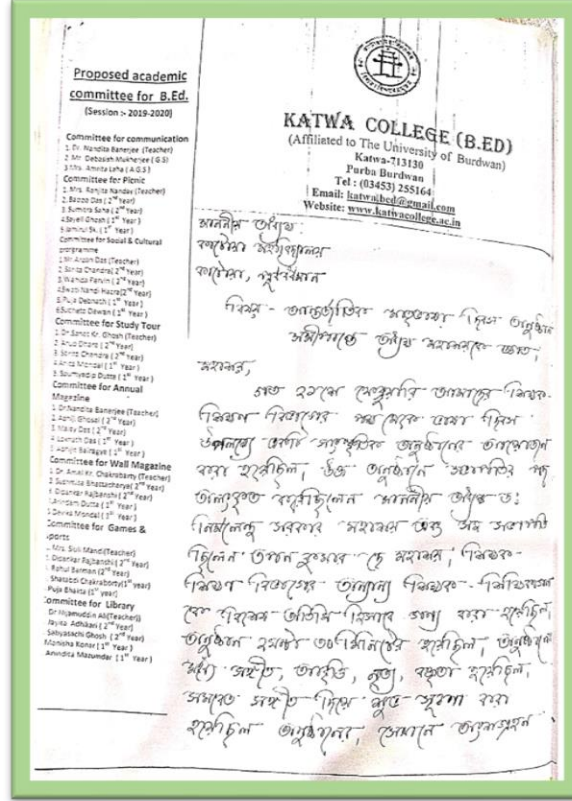 Proposed academic
committee for B.Ed.
(Session :- 2019-2020)
Committee for communication
1. Dr. Nandita Banerjee (Teacher)
2 Mr. Debasish Mukherjee ( G.S)
3 Mrs. Amrita Laha ( A.G.S )
Committee for Picnic
1. Mrs. Ranjita Nandav (Teacher)
2.Bappa Das ( 2nd Year)
3.Sumitra Saha ( 2nd Year)
4.Sayeli Ghosh ( 1st Year )
5.Jamirul Sk. ( 1st Year )
Committee for Social & Cultural
programme
1 Mr Arpan Das (Teacher)
2.Sarita Chandra( 2nd Year)
3.Wahida Parvin ( 2nd Year)
4.Swati Nandi Hazra(2nd Year)
5.Puja Debnath ( 1st Year )
6.Sucheta Dewan ( 1st Year )
Committee for Study Tour
1 Dr Sanat Kr. Ghosh (Teacher)
2 Arup Dhara ( 2nd Year)
3. Sarita Chandra ( 2nd Year)
4.Arita Mondal ( 1st Year )
5. Soumyadip Dutta ( 1st Year )
Committee for Annual
Magazine
1 Dr.Nandita Banerjee (Teacher)
2 Abhij Ghosal ( 2nd Year)
3 Malay Das ( 2nd Year)
4 Loknath Das ( 1st Year )
5 Abhijit Bairagya ( 1st Year )
Committee for Wall Magazine
1. Dr. Amal Kr. Chakrabarty (Teacher)
2 Sushmita Bhattacharya( 2nd Year)
Dibankar Rajbanshi ( 2nd Year)
Arindam Dutta ( 1st Year )
Mondal ( 1st Year )
Committee for Games &
Sports
Mrs. Siuli Mandi (Teacher)
Dibankar Rajbanshi ( 2nd Year)
Rahul Barman (2nd Year)
Shatabdi Chakraborty(1st year)
Puja Bhakta (1st year)
Committee for Library
Dr Nijamuddin Ali(Teacher))
Jayita Adhikari ( 2nd Year)
Sabyasachi Ghosh ( 2nd Year)
Manisha Konar ( 1st Year )
Anindita Mazumdar ( 1st Year )
KATWA COLLEGE (B.ED)
(Affiliated to The University of Burdwan)
Katwa-713130
Purba Burdwan
Tel : (03453) 255164
Email: katwa.bed@gmail.com
Website: www.katwacollege.ac.in
মাননীয় অধ্যক্ষ
কাটোয়া মহাবিদ্যালয়
কাটোয়া, পূর্ববর্ধমান
বিষয় - আন্তর্জাতিক মাতৃভাষা দিবস অনুষ্ঠান
অধ্যক্ষ মহাশয়কে জ্ঞাত,
মহাশয়,
গত ২১শে ফেব্রুয়ারি আমাদের শিক্ষক-
শিক্ষণ বিভাগের পক্ষ থেকে ভাষা দিবস
উপলক্ষ্যে একটি সাংস্কৃতিক অনুষ্ঠানের আয়োজন
করা হয়েছিল, উক্ত অনুষ্ঠানে সভাপতির পদ
অলংকৃত করেছিলেন মাননীয় অধ্যক্ষ ডঃ
নির্মলেন্দু সরকার মহাশয় এবং সহ সভাপতি
ছিলেন কুমার দে মহাশয়, শিক্ষক-
শিক্ষণ বিভাগের অন্যান্য শিক্ষক - শিক্ষিকাগণ
কে বিশেষ অতিথি হিসাবে গণ্য করা হয়েছিল,
অনুষ্ঠান ২ঘন্টা ৩০ মিনিটের হয়েছিল, অনুষ্ঠানে
মধ্যে সঙ্গীত, আবৃত্তি, নৃত্য, বক্তৃতা হয়েছিল,
সমবেত সঙ্গীত দিয়ে শুভ সূচনা করা
হয়েছিল অনুষ্ঠানের, সেখানে অংশগ্রহণ